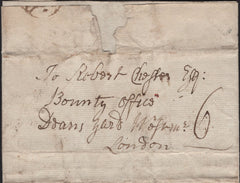 To Robert Chester Esq:
Bounty Office
Deans Yard Westmr: 6
London